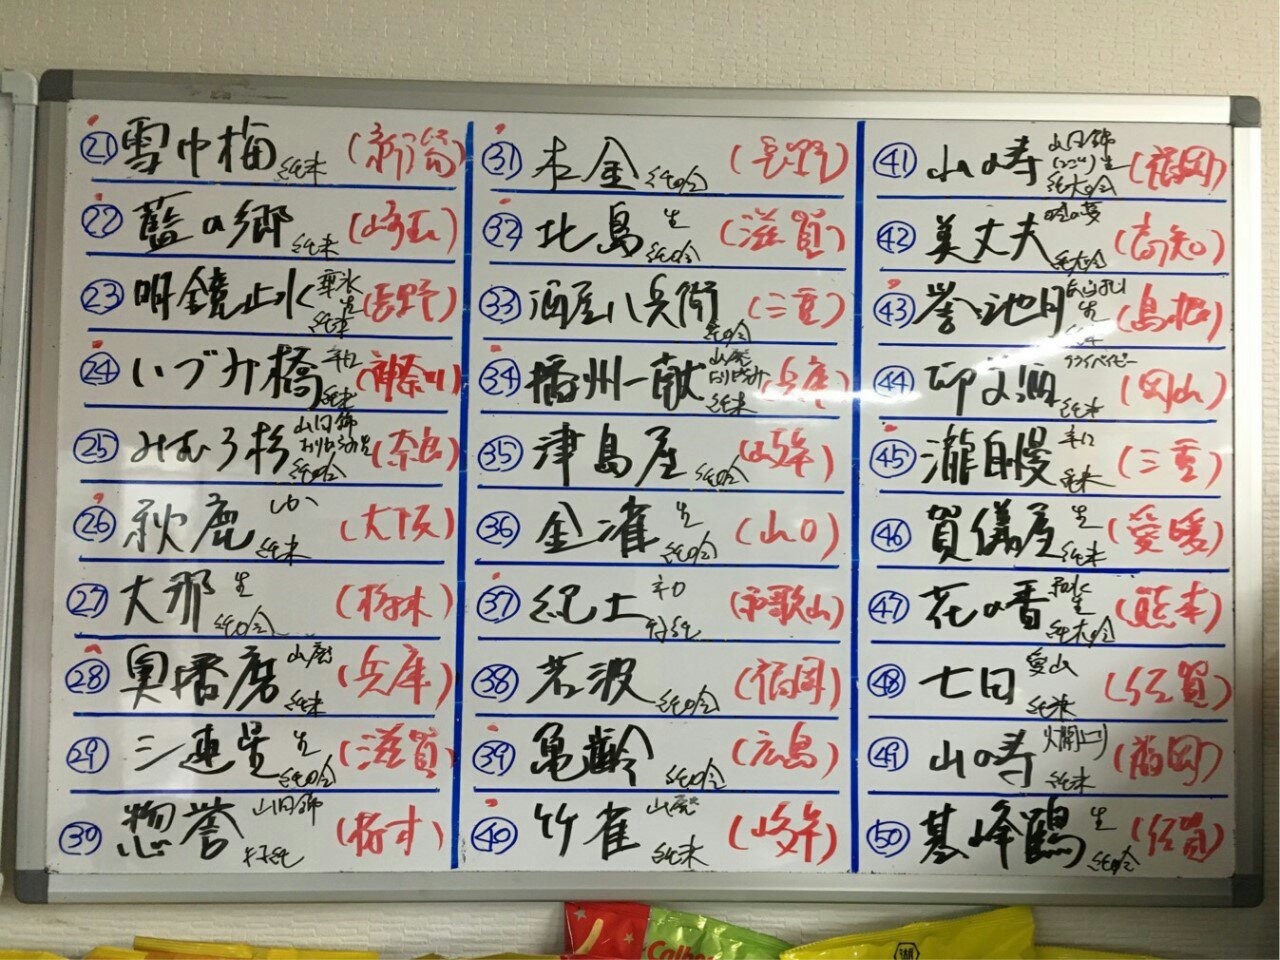 ㉑ 雪中梅 純米 (新潟)
㉒ 藍の郷 純米 (埼玉)
㉓ 明鏡止水 垂氷 生 純米 (長野)
㉔ いづみ橋 辛口 純米 (神奈川)
㉕ みむろ杉 山田錦 純吟 (奈良)
㉖ 秋鹿 純米 (大阪)
㉗ 大那 生 純吟 (栃木)
㉘ 奥播磨 山廃 純米 (兵庫)
㉙ 三連星 生 純吟 (滋賀)
㉚ 惣誉 山田錦 特純 (栃木)
㉛ 木金 純吟 (長野)
㉜ 北島 生 純吟 (滋賀)
㉝ 酒屋八兵衛 純吟 (三重)
㉞ 播州一献 山廃 純米 (兵庫)
㉟ 津島屋 純吟 (岐阜)
㊱ 金雀 生 純吟 (山口)
㊲ 紀土 辛口 特純 (和歌山)
㊳ 若波 純吟 (福岡)
㊴ 亀齢 純吟 (広島)
㊵ 竹雀 山廃 純米 (岐阜)
㊶ 山の寿 山田錦 生 純大吟 (福岡)
㊷ 美丈夫 純大吟 (高知)
㊸ 誉池月 生 純米 (島根)
㊹ 御前酒 純米 (岡山)
㊺ 瀧自慢 辛口 純米 (三重)
㊻ 賀儀屋 生 純米 (愛媛)
㊼ 花の香 和水 生 純大吟 (熊本)
㊽ 七田 愛山 純米 (佐賀)
㊾ 山の寿 純米 (福岡)
㊿ 基峰鶴 生 純吟 (佐賀)
Calbee
湖